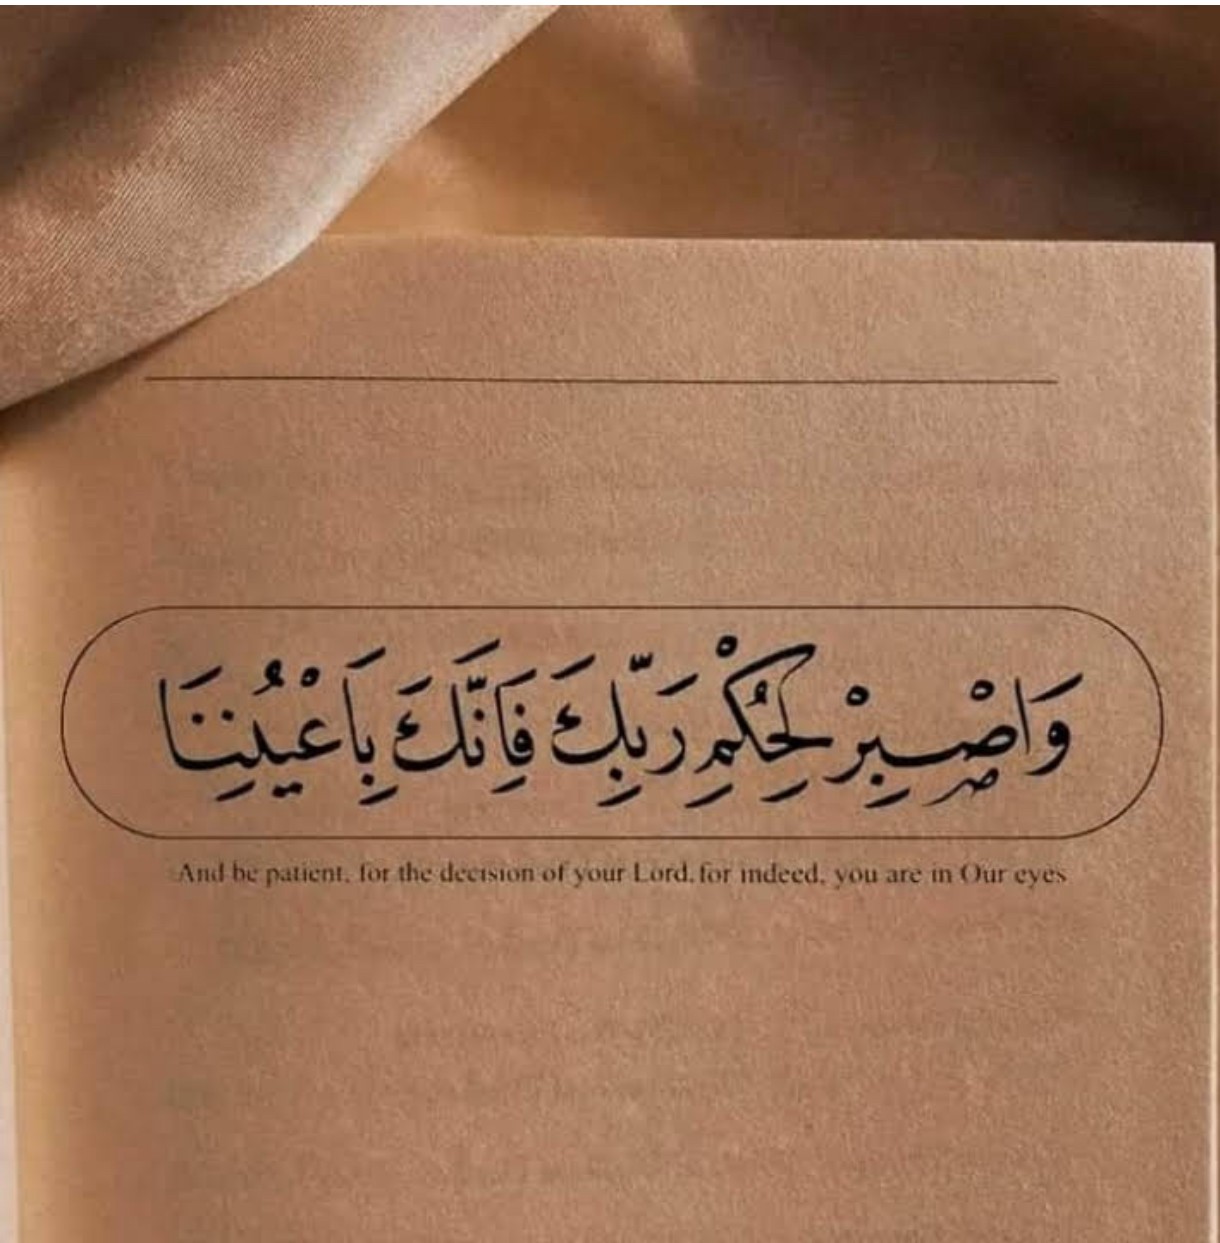 وَاصْبِرْ لِحُكْمِ رَبِّكَ فَاِنَّكَ بِاَعْيُنِنَا
And be patient, for the decision of your Lord, for indeed, you are in Our eyes